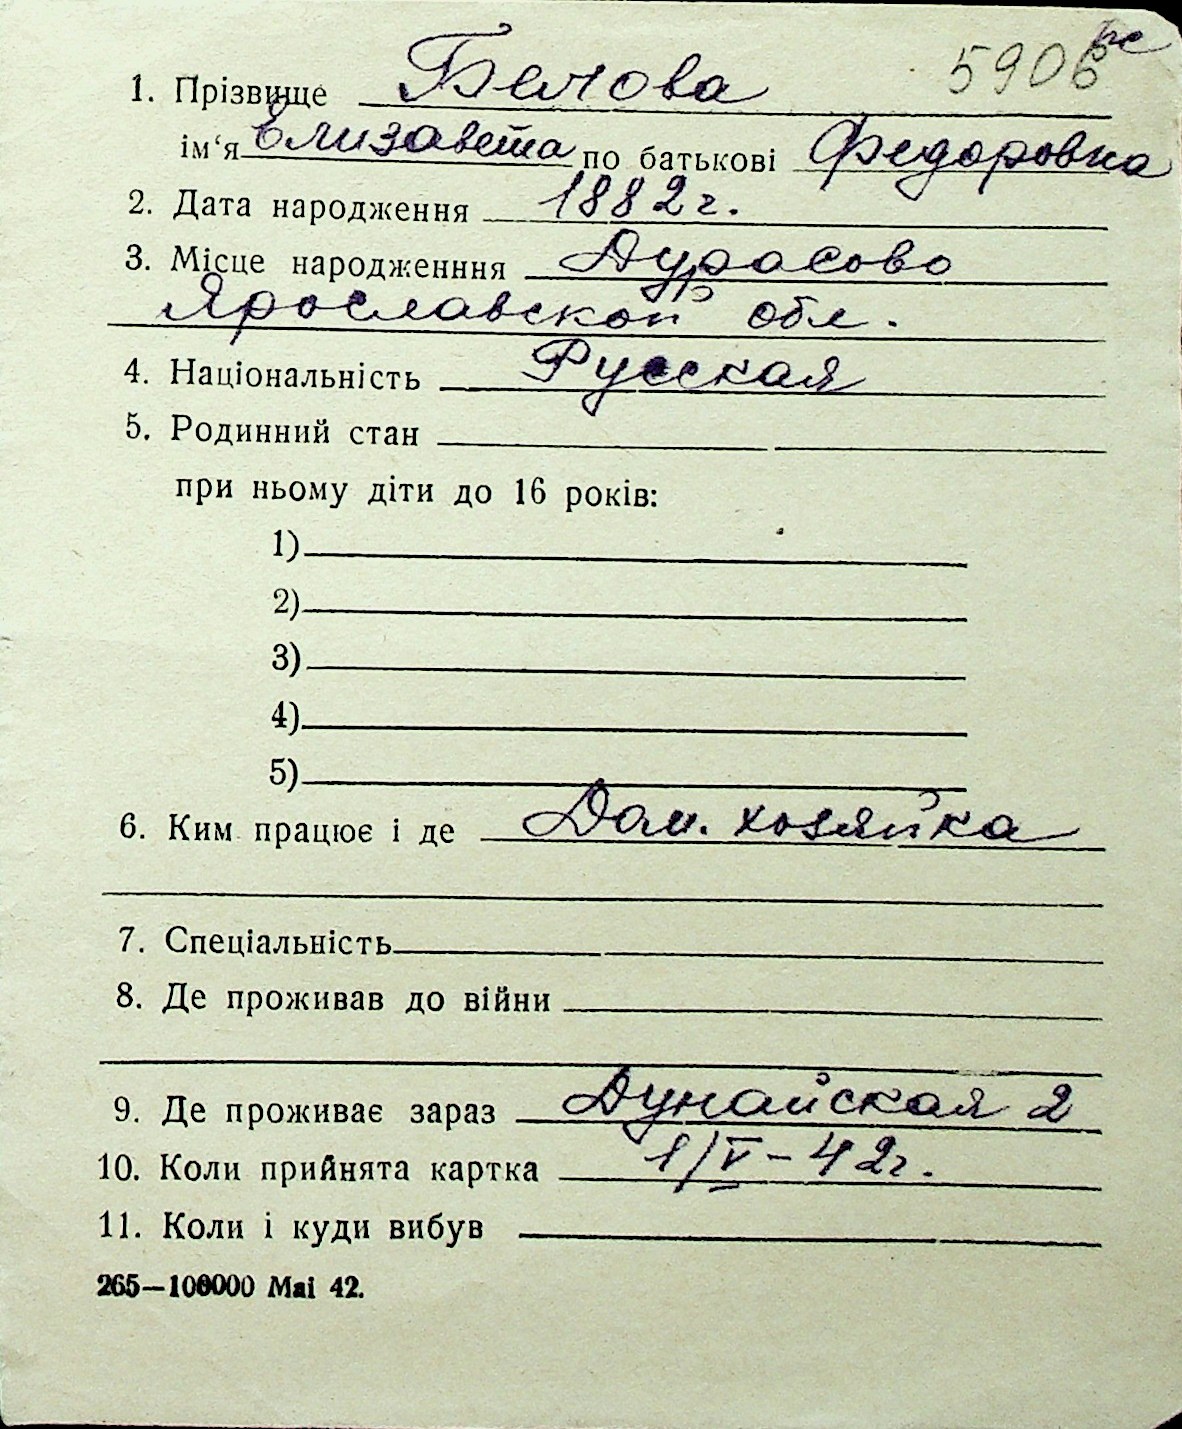 5906
1. Прізвище Белова
ім‘я Елизавета по батькові Федоровна
2. Дата народження 1882 г.
3. Місце народженння Дурасово
Ярославской обл.
4. Національність Русская
5. Родинний стан
при ньому діти до 16 років:
1)
2)
3)
4)
5)
6. Ким працює і де Дом. хозяйка
7. Спеціальність
8. Де проживав до війни
9. Де проживає зараз Дунайская 2
10. Коли прийнята картка 1/V – 42г.
11. Коли і куди вибув
265—100000 Mai 42.